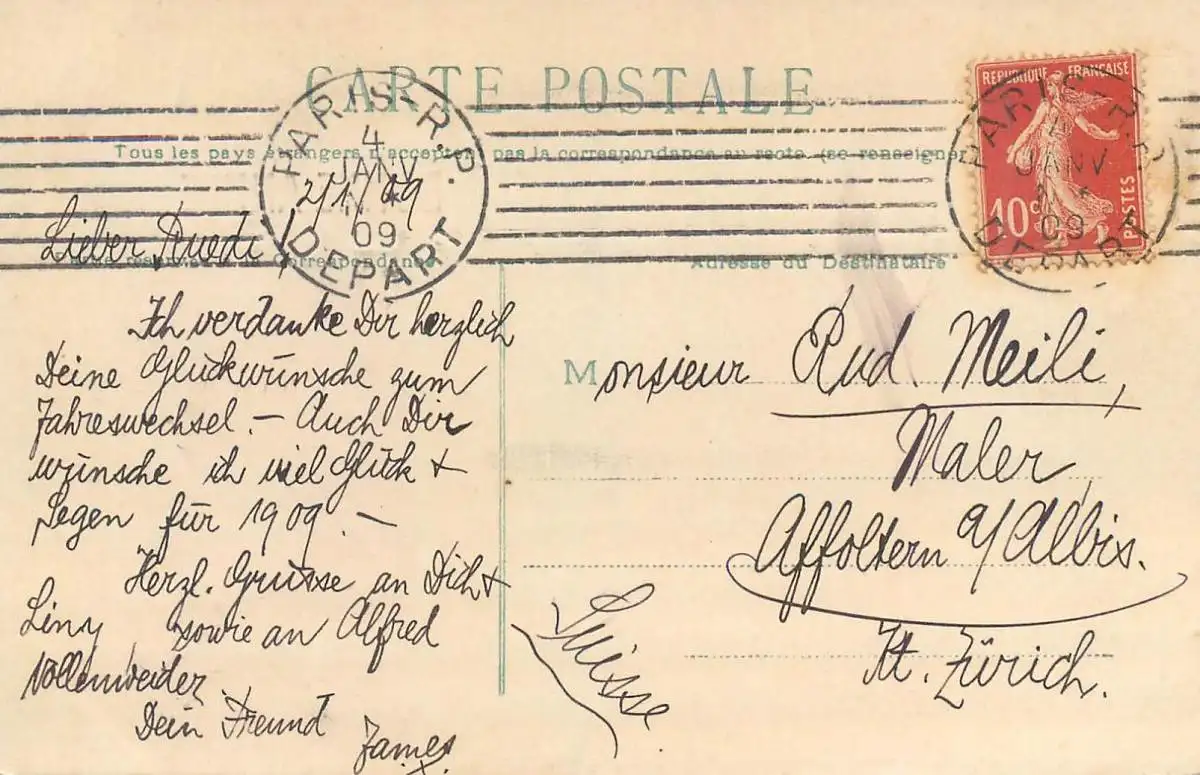 CARTE POSTALE
Tous les pays étrangers n'acceptent pas la correspondance au recto (se renseigner
Correspondance
Adresse du Destinataire
PARIS-R.P.
4
JANV
09
DEPART
REPUBLIQUE FRANÇAISE
10c
POSTES
PARIS-R.P.
4
JANV
09
DEPART
2/1/09
Lieber Ruedi!
Ich verdanke Dir herzlich
Deine Glückwünsche zum
Jahreswechsel. – Auch Dir
wünsche ich viel Glück +
Segen für 1909. –
Herzl. Grüsse an Dich +
Liny sowie an Alfred
Vollenweider.
Dein Freund
James.
Monsieur Rud. Meili,
Maler,
Affoltern a/Albis.
Kt. Zürich.
Suisse